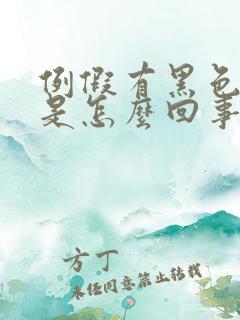 例假有黑色
是怎麼回事
方丁
未经同意禁止转载